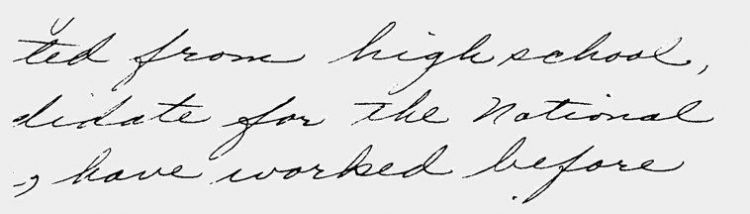 ted from high school,
didate for the National
, have worked before